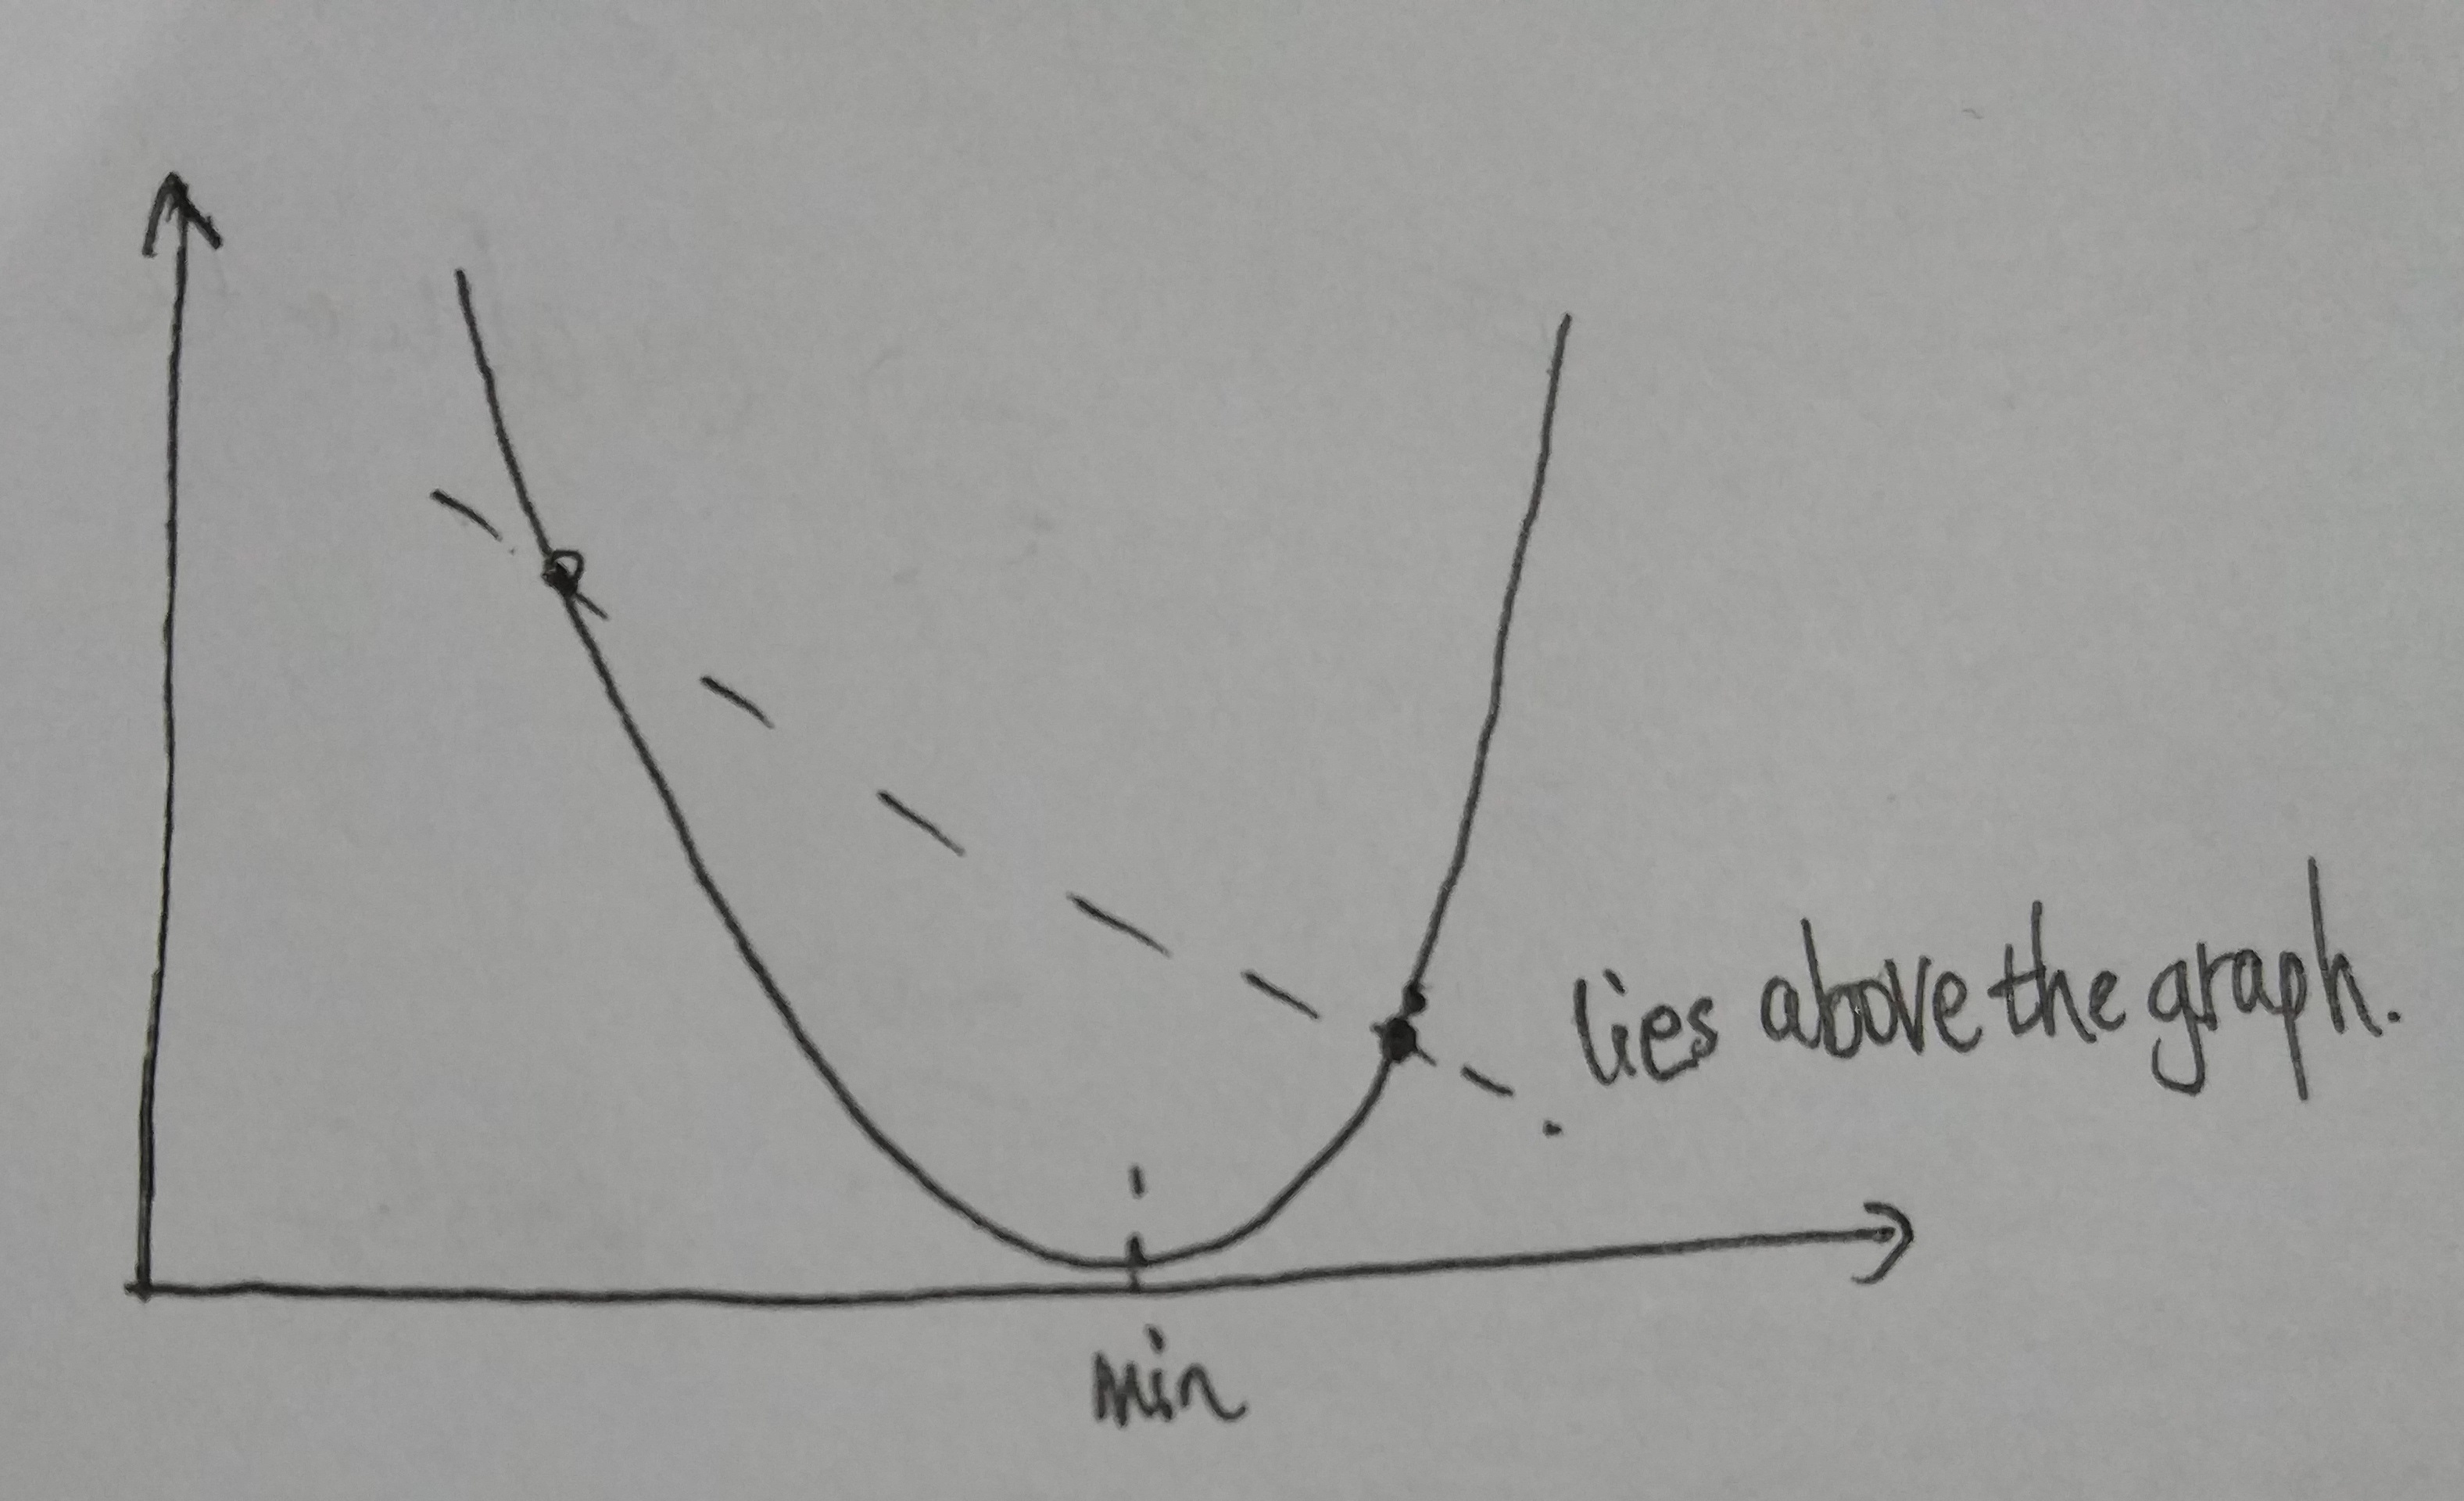 lies above the graph.
min